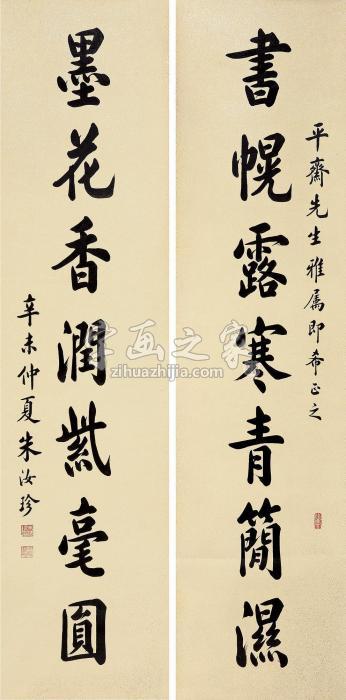 平齋先生雅属即希正之
書幌露寒青簡濕
墨花香潤紫毫圓
辛未仲夏朱汝珍
字画之家
zihuazhijia.com